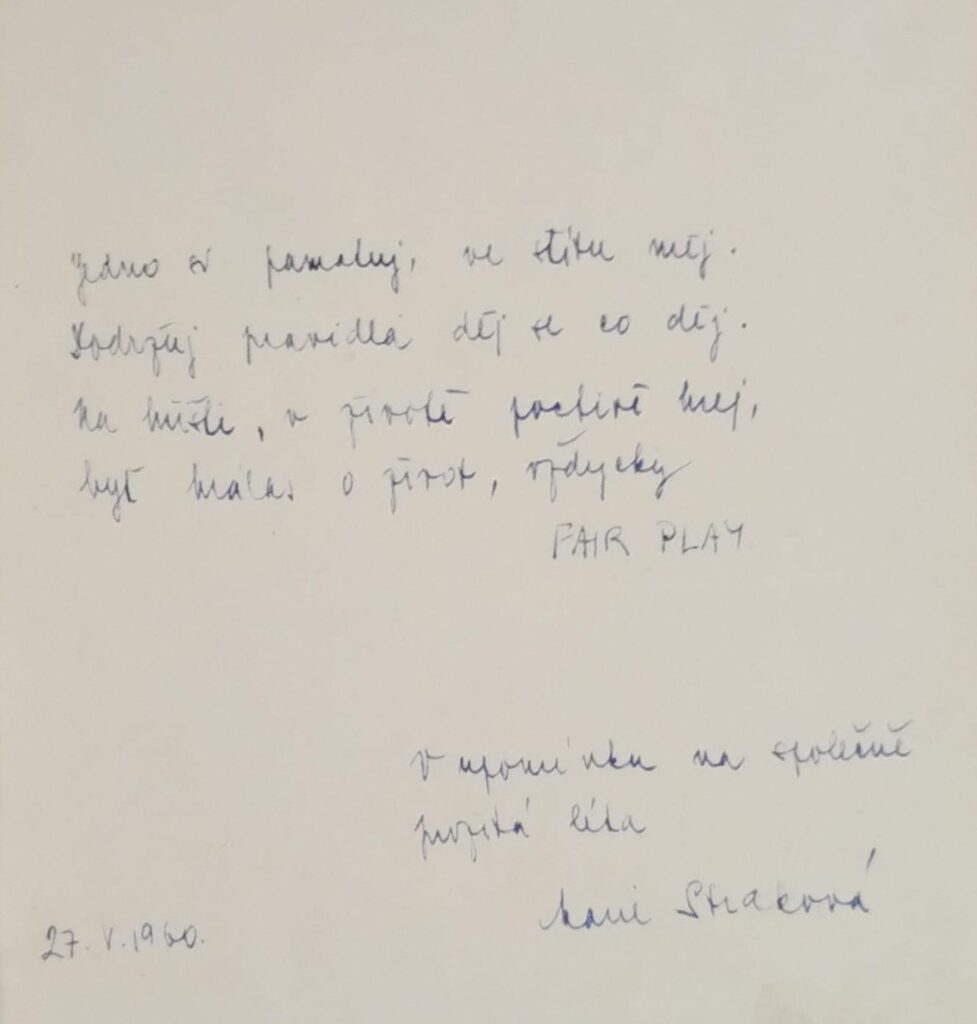 Jedno si pamatuj, ve štítu měj.
Dodržuj pravidla děj se co děj.
Na hřišti, v životě poctivě hrej,
byť hrálas o život, vždycky
FAIR PLAY
V upomínku na společně
prožitá léta
Marie Straková
27. V. 1960.